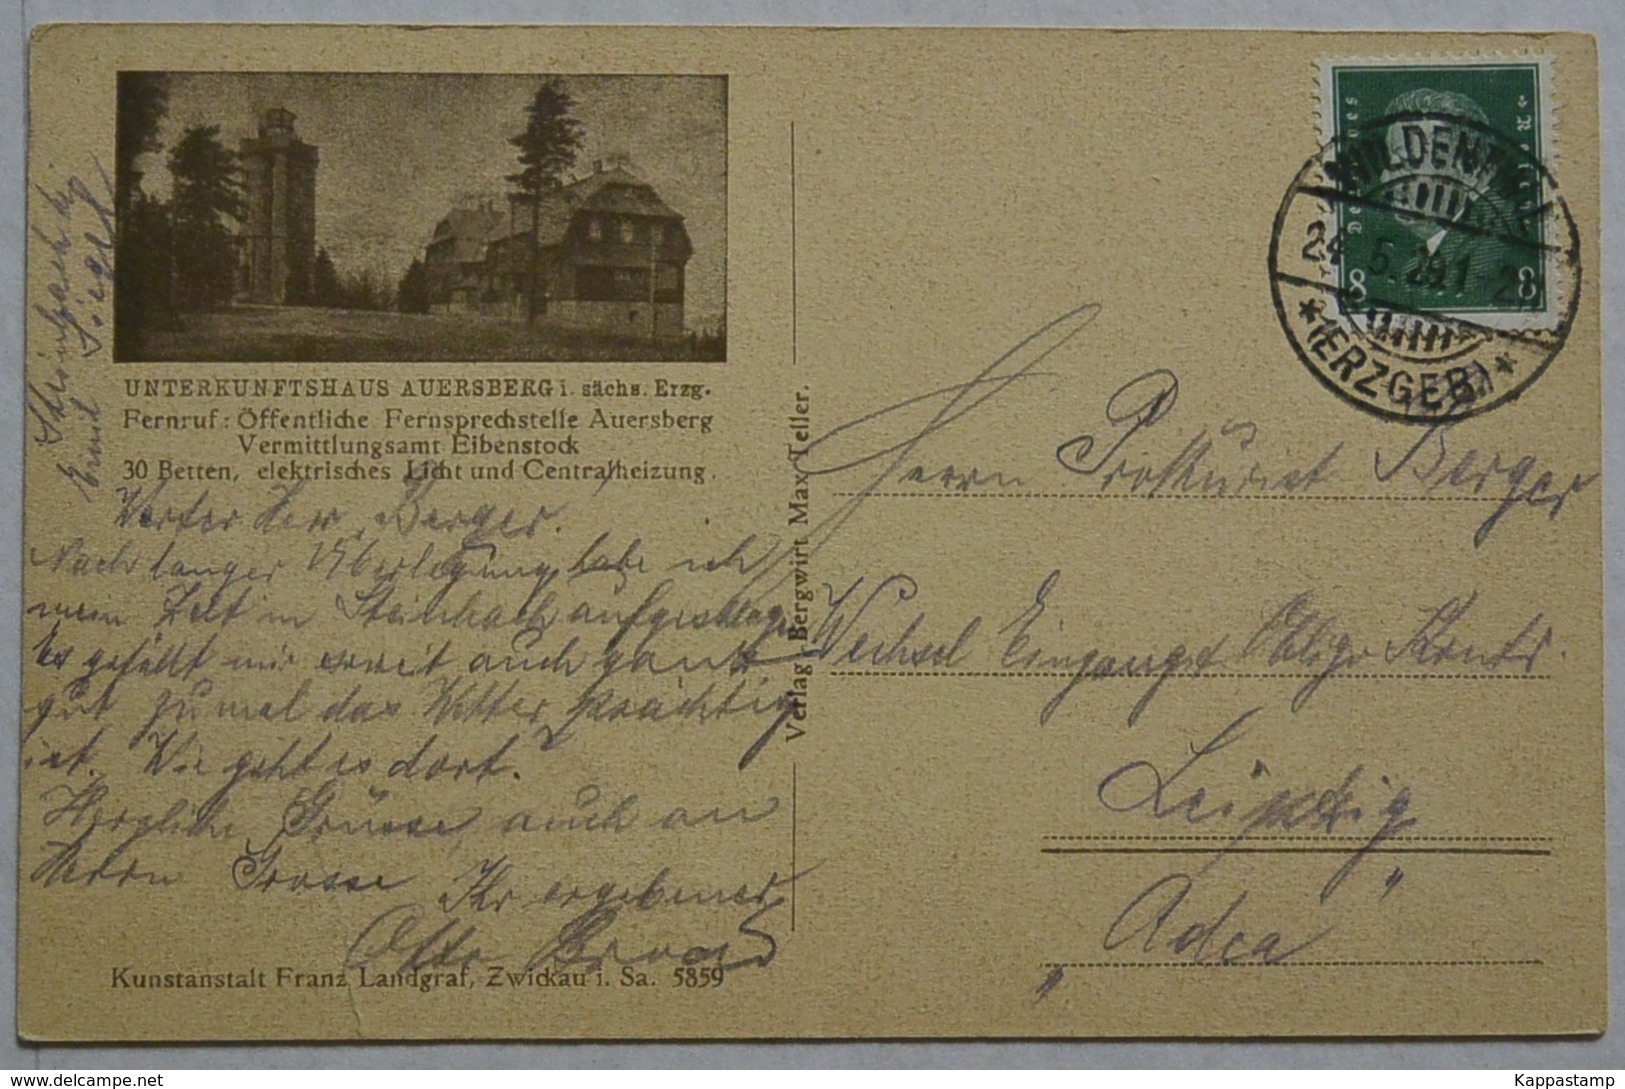 UNTERKUNFTSHAUS AUERSBERG i. sächs. Erzg.
Fernruf: Öffentliche Fernsprechstelle Auersberg
Vermittlungsamt Eibenstock
30 Betten, elektrisches Licht und Centralheizung.
Werter Herr Berger.
Nach langer Überlegung habe ich
mein Zelt in Steinbach aufgeschlagen
Es gefällt mir soweit auch ganz
gut zumal das Wetter prächtig
ist. Wie geht es dort?
Herzliche Grüsse, auch an
Herrn Grosse Ihr ergebener
Otto
Steinbach bei
Siegel
Kunstanstalt Franz Landgraf, Zwickau i. Sa. 5859
Verlag Bergwirt Max Teller.
Deutsches Reich
8 8
WILDENTHAL
24.5.29.1-2
*(ERZGEB.)*
Herrn Prokurist Berger
Wechsel Eingangs Obligo Konto.
Leipzig
"Adca"
©Kappastamp